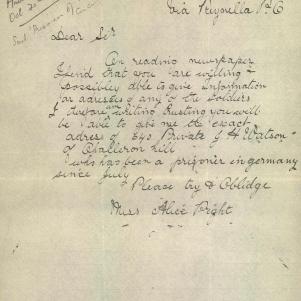 Via Reynella P.O
Dear Sir
On reading newspaper
I find that you are willing
possibley able to give information
or adresses of any of the soldiers
I therefore am writing trusting you will
be able to get me the exact
adress of 540 Private J H Watson
of O'Halleron Hill
who has been a prisoner in germany
since July
Please try & Oblidge
Miss Alice Pright